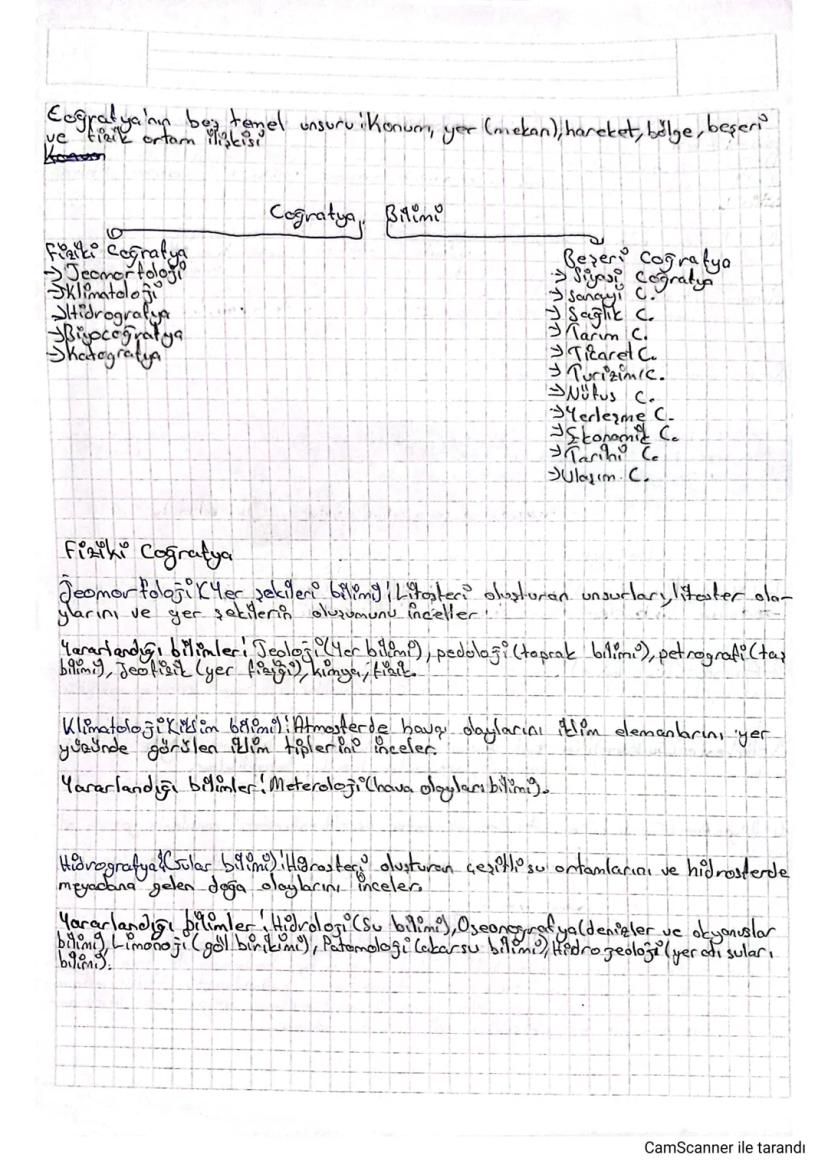 Coğrafya'nın beş temel unsuru: Konum, yer (mekan), hareket, bölge, beşeri
ve fizik ortam ilişkisi
Coğrafya Bilimi
Fiziki Coğrafya
→Jeomorfoloji
→Klimatoloji
→Hidrografya
→Biyocoğrafya
→Katografya
Beşeri Coğrafya
→Siyasi Coğrafya
→Sanayi C.
→Sağlık C.
→Tarım C.
→Ticaret C.
→Turizim C.
→Nüfus C.
→Yerleşme C.
→Ekonomik C.
→Tarihi C.
→Ulaşım C.
Fiziki Coğrafya
Jeomorfoloji (Yer şekileri bilimi): Litosferi oluşturan unsurlar, litosfer ola-
ylarını ve yer şekilerin oluşumunu inceller.
Yararlandığı bilimler: Jeoloji (Yer bilimi), pedoloji (toprak bilimi), petrografi (taş
bilimi), Jeofizik (yer fiziği), kimya, fizik.
Klimatoloji (iklim bilimi): Atmosferde hava olaylarını iklim elemanlarını yer
yüzünde görülen iklim tiplerini inceler.
Yararlandığı bilimler: Meteroloji (hava olayları bilimi).
Hidrografya (Sular bilimi): Hidrosferi oluşturan çeşitli su ortamlarını ve hidrosferde
meyadana gelen doğa olaylarını inceler.
Yararlandığı bilimler: Hidroloji (Su bilimi), Oseonografya (denizler ve okyanuslar
bilimi), Limonoji (göl birikimi), Patomoloji (akarsu bilimi), Hidrojeoloji (yer altı suları
bilimi).
CamScanner ile tarandı